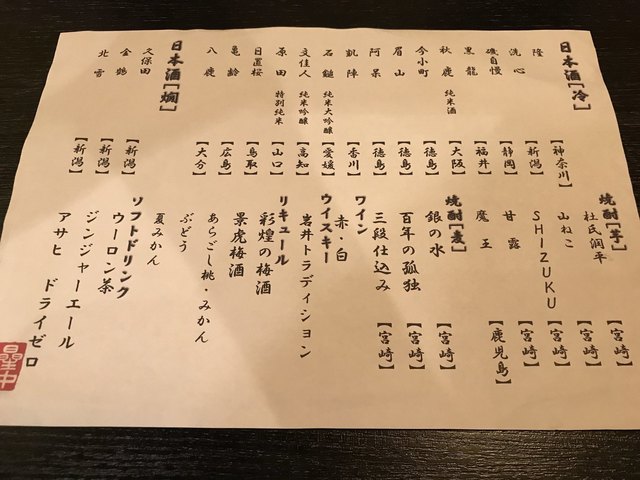 日本酒【冷】
隆 【神奈川】
洗心 【新潟】
磯自慢 【静岡】
黒龍 【福井】
秋鹿 純米酒 【大阪】
今小町 【徳島】
眉山 【徳島】
阿呆 【徳島】
凱陣 【香川】
石鎚 純米大吟醸 【愛媛】
文佳人 純米吟醸 【高知】
原田 特別純米 【山口】
日置桜 【鳥取】
亀齢 【広島】
八鹿 【大分】
日本酒【燗】
久保田 【新潟】
金鶴 【新潟】
北雪 【新潟】
焼酎【芋】
杜氏潤平 【宮崎】
山ねこ 【宮崎】
SHIZUKU 【宮崎】
甘露 【宮崎】
魔王 【鹿児島】
焼酎【麦】
銀の水 【宮崎】
百年の孤独 【宮崎】
三段仕込み 【宮崎】
ワイン
赤・白
ウイスキー
岩井トラディション
リキュール
彩煌の梅酒
景虎梅酒
あらごし桃・みかん
ぶどう
夏みかん
ソフトドリンク
ウーロン茶
ジンジャーエール
アサヒ ドライゼロ
星中